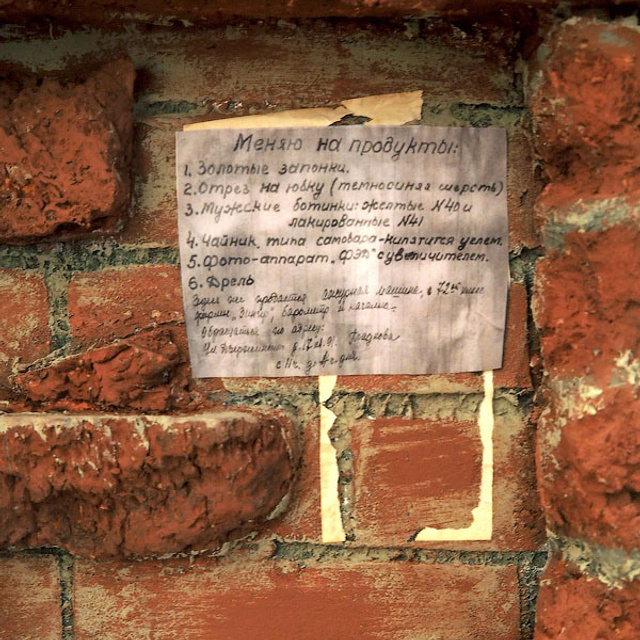 Меняю на продукты:
1. Золотые запонки.
2. Отрез на юбку (темносиняя шерсть)
3. Мужские ботинки: желтые №40 и
лакированные №41
4. Чайник типа самовара-кипятится углем.
5. Фото-аппарат „ФЭД" с увеличителем.
6. Дрель
Здесь же продается машина, в
фирмы „Зингер", барометр и качалка.
Обращаться по адресу:
Ул.
с до дня.